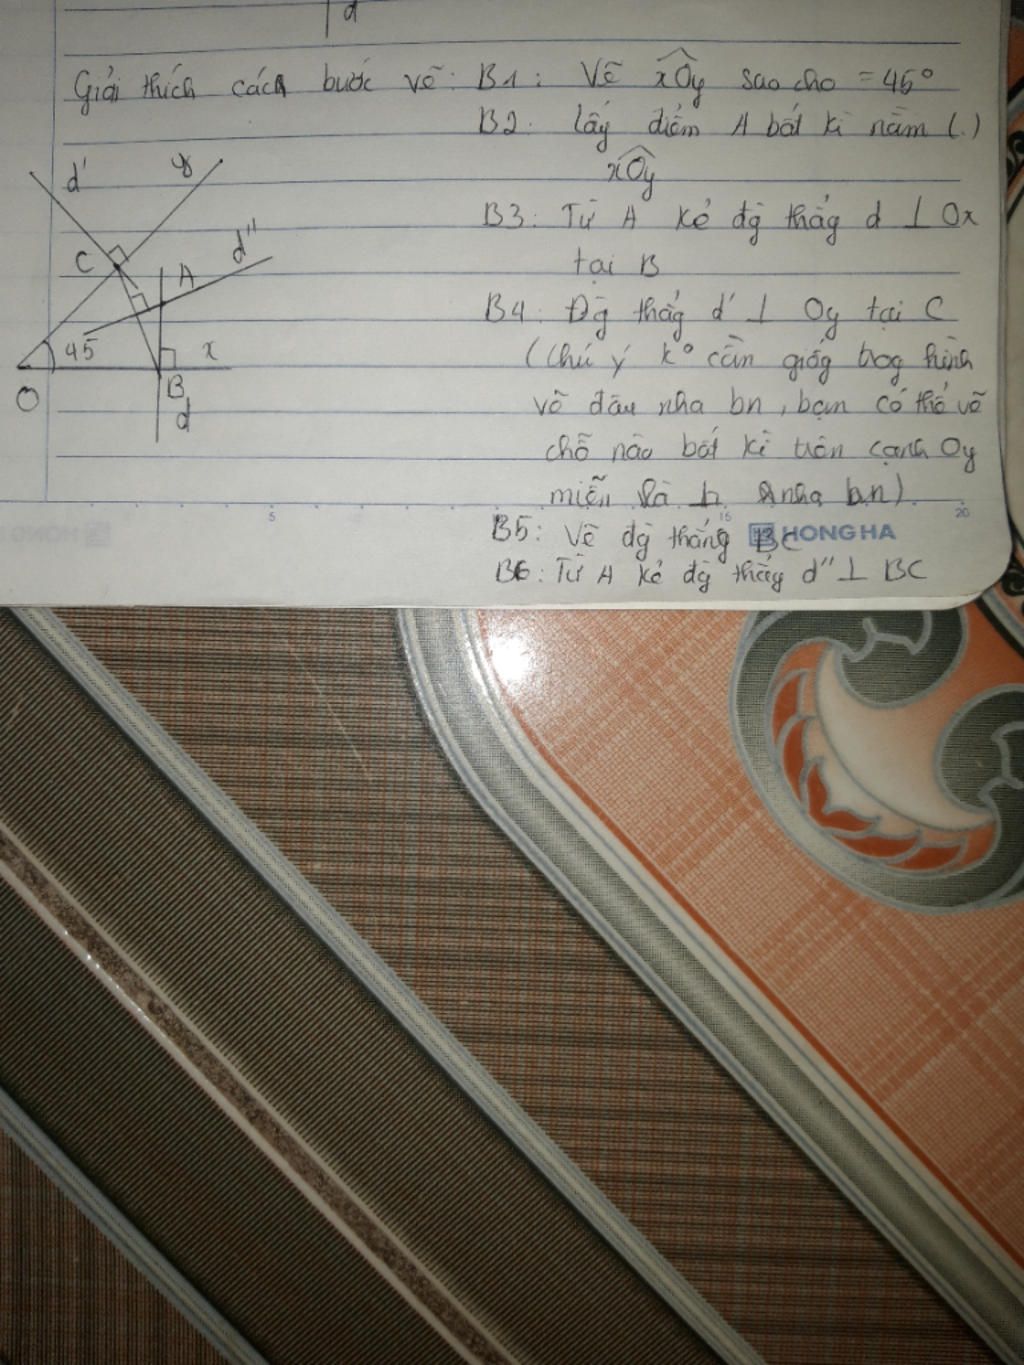 d
Giải thích các bước vẽ: B1: Vẽ xOy sao cho = 45°
B2: lấy điểm A bất kì nằm (.)
xOy
B3: Từ A kẻ đg thẳg d ⊥ Ox
tại B
B4: Đg thẳg d' ⊥ Oy tại C
(Chú ý k° cần giốg trog hình
vẽ đâu nha bn, bạn có thể vẽ
chỗ nào bất kì trên cạnh Oy
miễn là nha bn)
B5: Vẽ đg thẳng BC
B6: Từ A kẻ đg thẳg d'' ⊥ BC
d'
y
C
d''
A
45
x
O
B
d
5
15
20
HONG HA
HONG